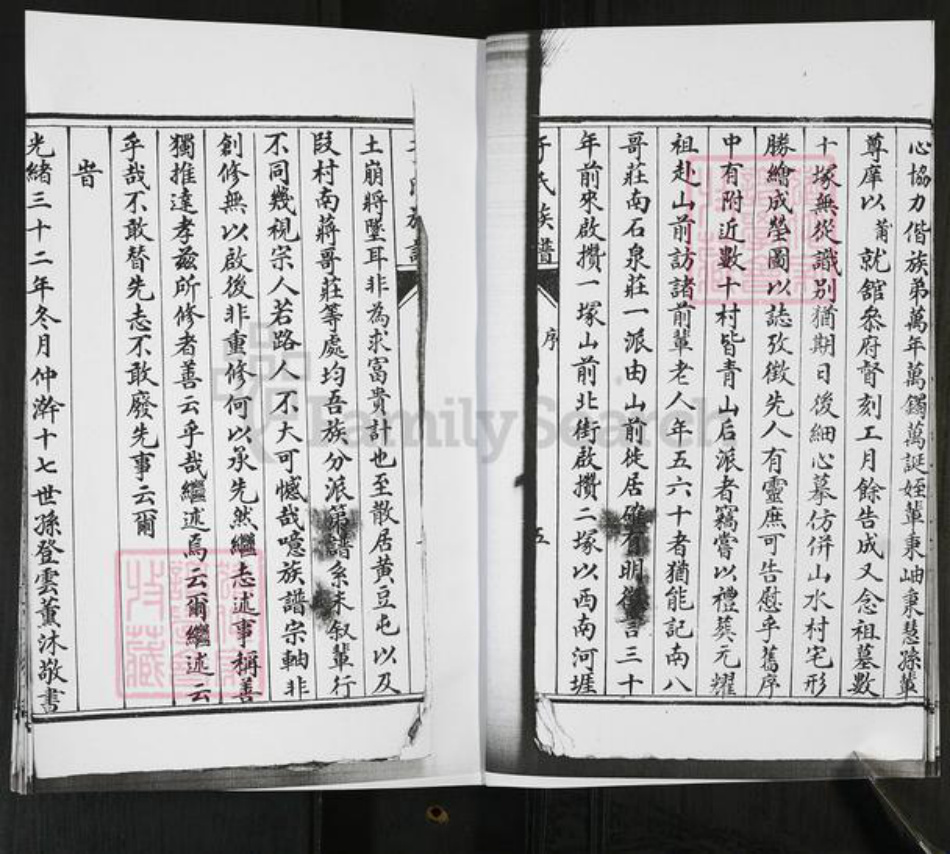 心協力偕族弟萬年萬鐲萬誕姪輩秉岫秉慧孫輩
尊庠以莆就舘叅府督刻工月餘告成又念祖墓數
十塚無從識別猶期日後細心摹仿併山水村宅形
勝繪成塋圖以誌攷徵先人有靈庶可告慰乎舊序
中有附近數十村皆青山后派者竊嘗以禮葬元耀
祖赴山前訪諸前輩老人年五六十者猶能記南八
哥莊南石泉莊一派由山前徙居確有明徵言三十
年前來啟攢一塚山前北街啟攢二塚以西南河堐
于氏族譜
序
五
土崩將墜耳非為求富貴計也至散居黄豆屯以及
段村南蔣哥莊等處均吾族分派第譜系未叙輩行
不同幾視宗人若路人不大可憾哉噫族譜宗軸非
創修無以啟後非重修何以承先然繼志述事稱善
獨推達孝茲所修者善云乎哉繼述焉云爾繼述云
乎哉不敢替先志不敢廢先事云爾
旹
光緒三十二年冬月仲澣十七世孫登雲薰沐敬書
FamilySearch